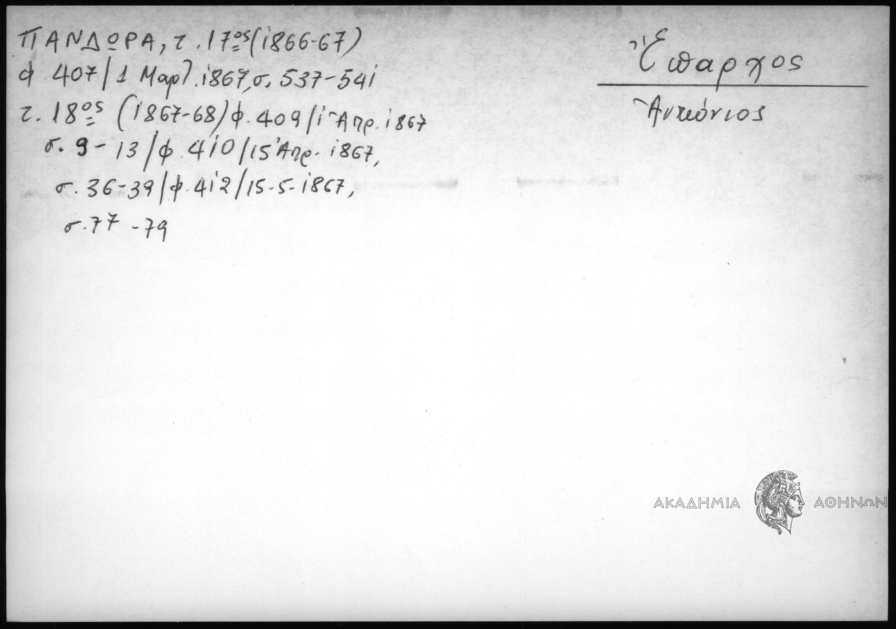 ΠΑΝΔΩΡΑ, τ. 17ος (1866-67)
φ 407/1 Μαρτ. 1867, σ. 537-541
τ. 18ος (1867-68) φ. 409/1 Ἀπρ. 1867
σ. 9-13/φ. 410/15 Ἀπρ. 1867,
σ. 36-39/φ. 412/15-5-1867,
σ. 77-79
Ἔπαρχος
Ἀντώνιος
ΑΚΑΔΗΜΙΑ ΑΘΗΝΩΝ